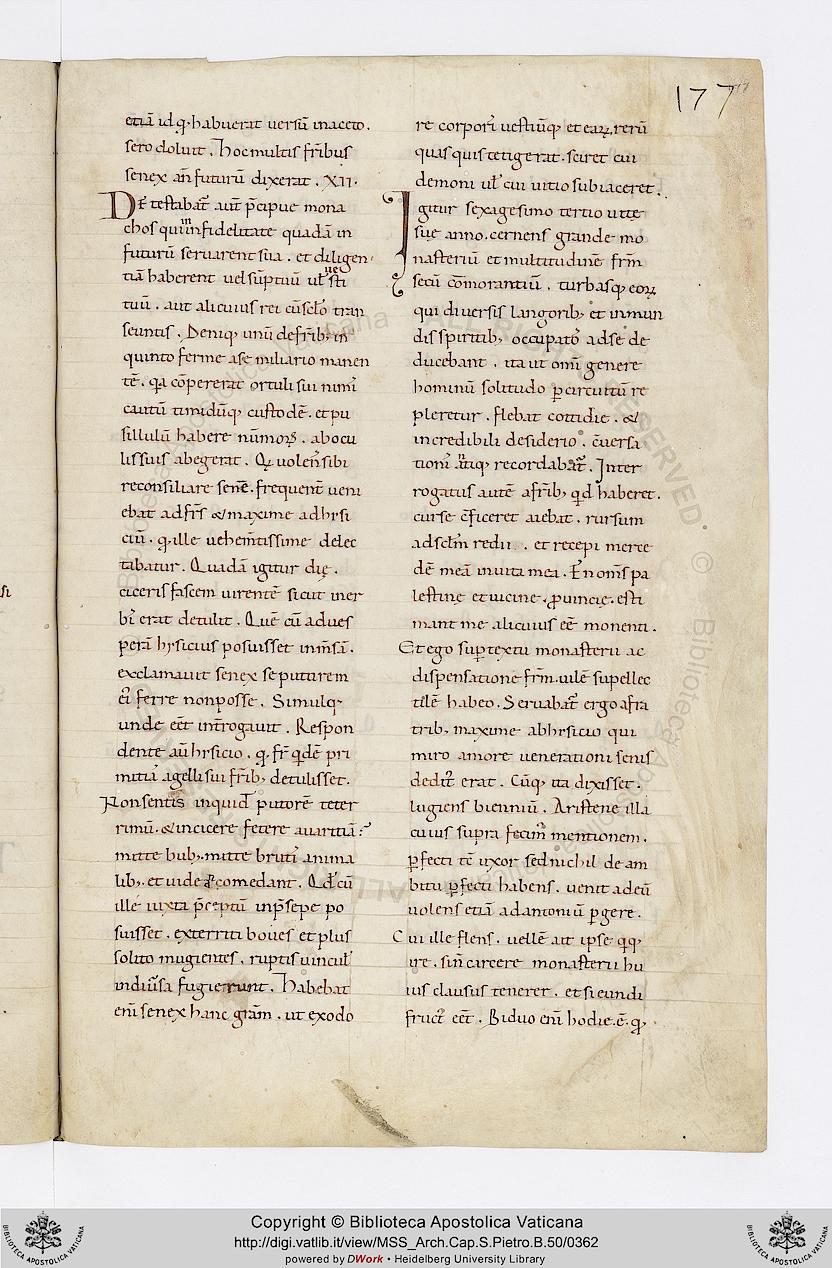 177
etiā id q̨ habuerat uersū in aceto.
sero doluit. Hoc multis fr̄ibus
senex an̄ futurū dixerat. XII.
Detestabat᷑ aut̄ p̄cipue mona
chos qui infidelitate quadā in
futurū seruarent sua. et diligen
tiā haberent uel sūptuū ul̄ uesti
tuū. aut alicuius rei cū sc̄lo tran
seuntis. Deniq; unū de fr̄ib; in
quinto ferme a se miliario manen
tē. q̄a cōpererat ortuli sui nimī
cautū timidūq; custodē. et pu
sillulū habere nūmorꝫ. ab ocu
lis suis abegerat. Qui uolens sibi
reconsiliare senē. frequent̄ ueni
ebat ad fr̄s & maxime ad hesi
ciū. q̨ ille uehem̄tissime delec
tabatur. Quadā igitur dię.
ciceris fascem uirentē sicut in er
bī erat detulit. Quē cū ad ues
perā hesicius posuisset in m̄sā.
exclamauit senex se putorem
eī ferre non posse. Simulq;
unde eēt int̄rogauit. Respon
dente aū hesicio. q̨ fr̄ q̄dē pri
mitiā agelli sui fr̄ib; detulisset.
Non sentis inquid putorē teter
rimū. & in cicere fetere auaritiā?
mitte bub;. mitte brutī anima
lib;. et uide si comedant. Qd̄ cū
ille iuxta p̄ceptū in p̄sepe po
suisset. exterriti boues et plus
solito mugientes. ruptis uincul̄
in diuīsa fugierunt. Habebat
enī senex hanc grām. ut ex odo
re corporī uestiūq; et earꝫ rerū
quas quis tetigerat. sciret cui
demoni ul̄ cui uitio subiaceret.
Igitur sexagesimo tertio uitę
suę anno. cernens grande mo
nasteriū et multitudinē fr̄m
secū cōmorantiū. turbasq; eorꝫ
qui diuersis langorib; et inmun
dis spiritib; occupatos ad se de
ducebant. ita ut omī genere
hominū solitudo p circuitū re
pleretur. flebat cottidie. &
incredibili desiderio. c̄uersa
tionī antiq; recordabat᷑. Inter
rogatus autē a fr̄ib; q̄d haberet.
cur se c̄ficeret aiebat. rursum
ad sc̄lm redii. et recepi merce
dē meā in uita mea. En om̄s pa
lestinę et uicine ꝓuincię. esti
mant me alicuius eē monenti.
Et ego sup̄textu monasterii ac
dispensatione fr̄m. uilē supellec
tilē habeo. Seruabat᷑ ergo a fra
trib; maxime ab hesicio qui
miro amore uenerationi senis
dedit᷑ erat. Cūq; ita dixisset.
lugiens bienniū. Aristene illa
cuius supra fecim᷑ mentionem.
pfecti tē uxor sed nichil de am
bitu pfecti habens. uenit ad eū
uolens etiā ad antoniū pgere.
Cui ille flens. uellē ait ipse q̨q;
ire. si n̄ carcere monasterii hu
ius clausus tenerer. et si eundi
fruct᷑ eēt. Biduo enī hodie. ē. q̨
Copyright © Biblioteca Apostolica Vaticana
http://digi.vatlib.it/view/MSS_Arch.Cap.S.Pietro.B.50/0362
powered by DWork • Heidelberg University Library